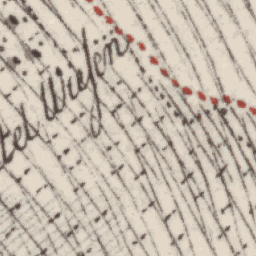 tes Wiesen